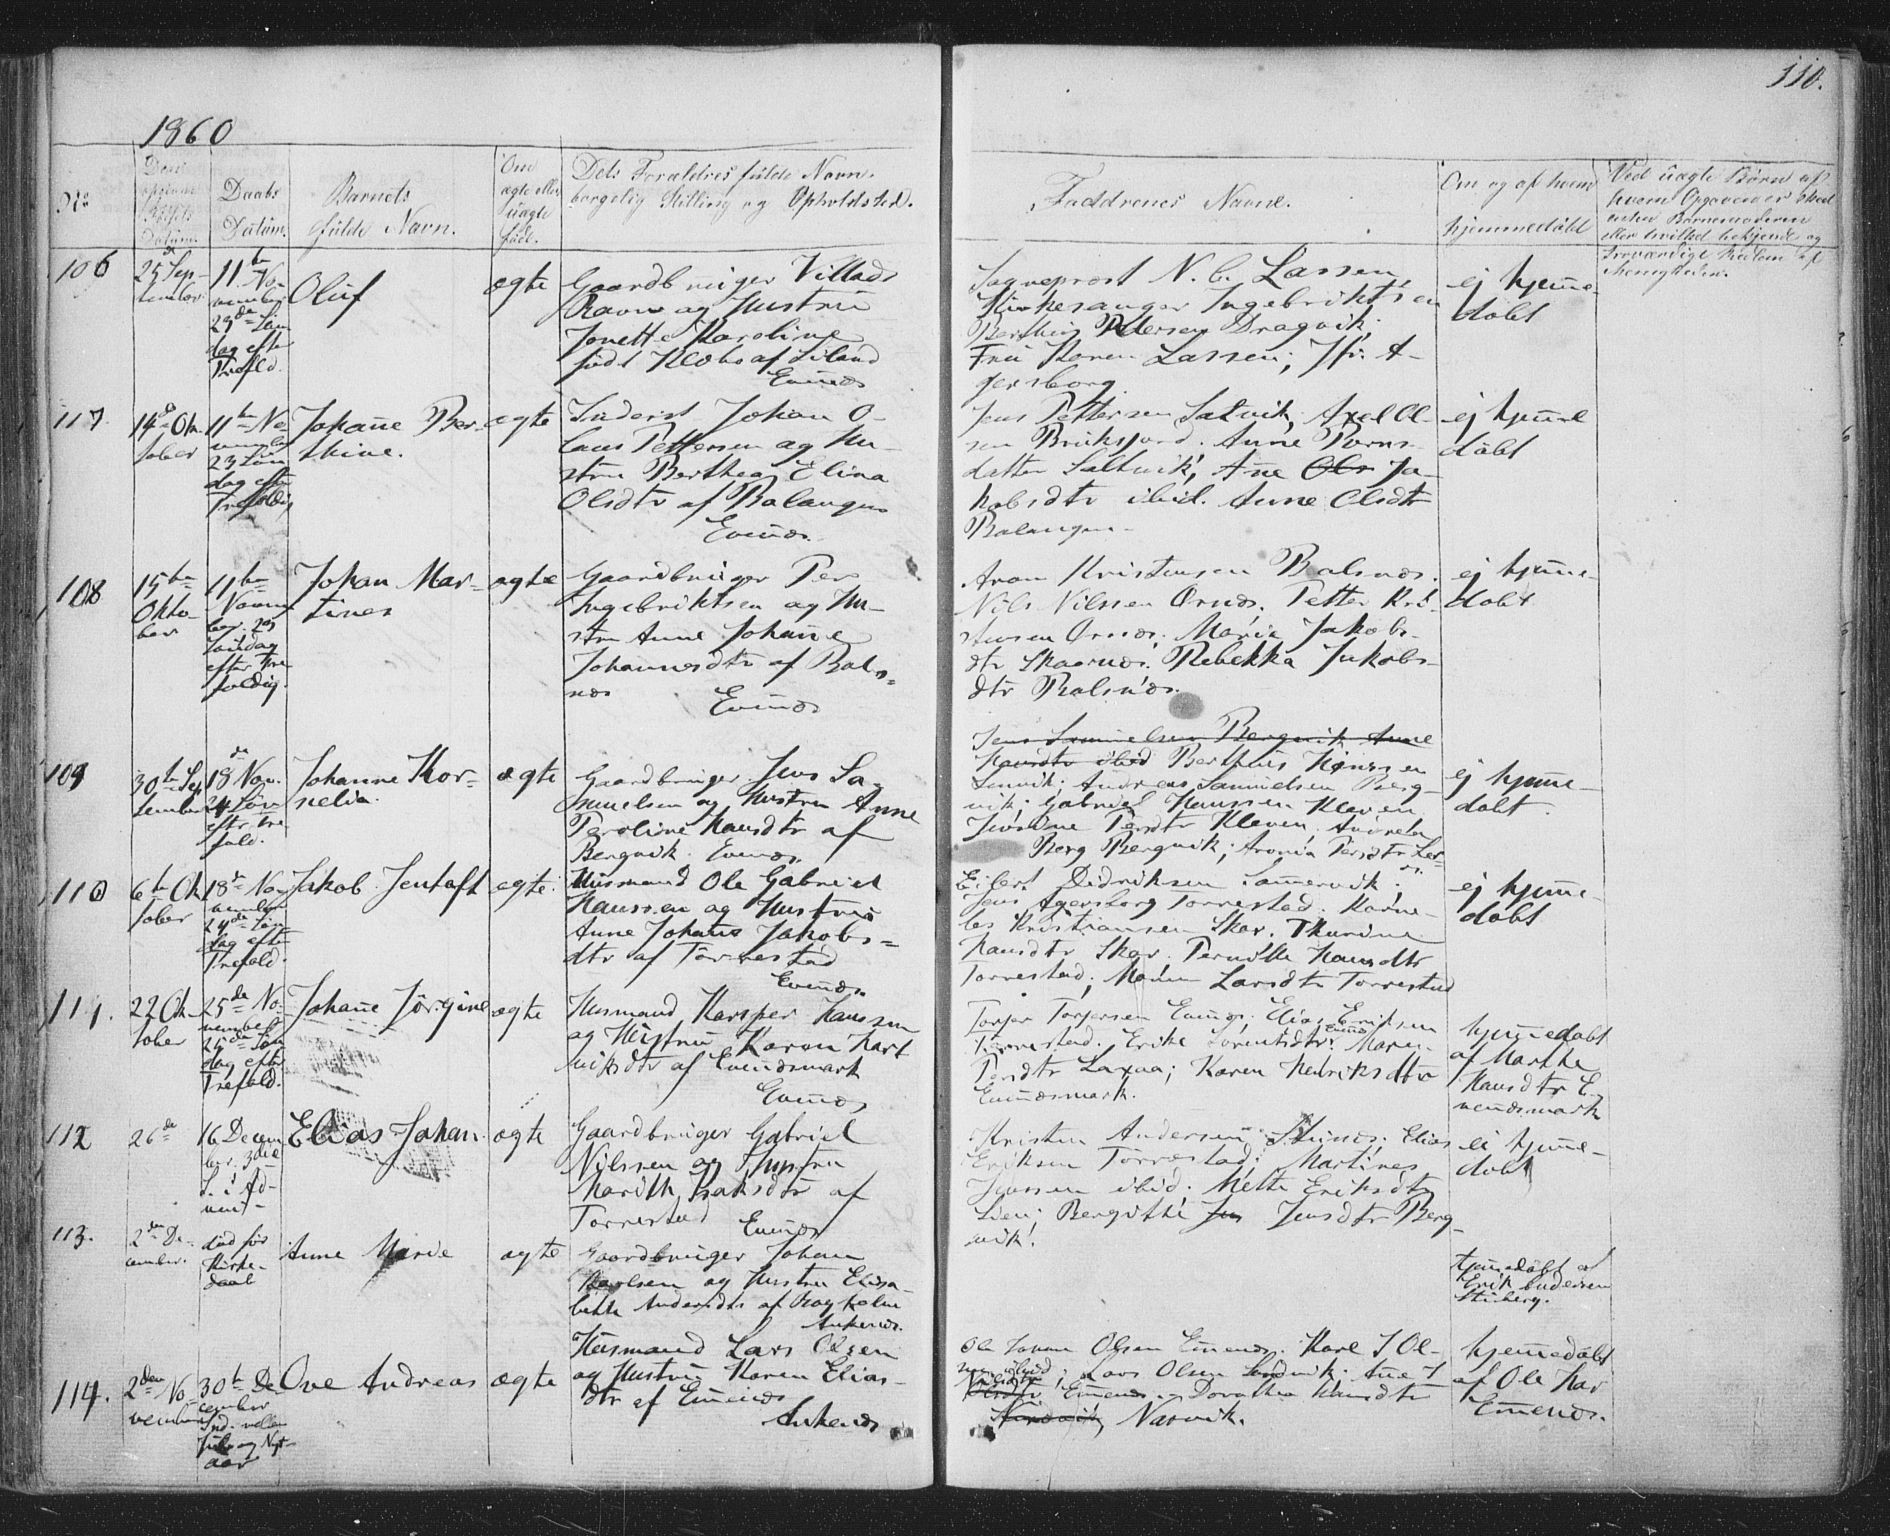 110.
1860
No
Daabs
Datum.
Barnets
fulde Navn.
Om
ægte eller
uægte
født.
Dets Forældres fulde Navn.
borgelig Stilling og Opholdsted.
Faddrenes Navne.
Om og af hvem
hjemmedøbt
106
25 Sep-
tember.
11te No-
vember
23de Søn
dag efter
Trefold.
Oluf
ægte
Gaardbruger Villads
Ravn og Hustru
Jonette Karoline
født af Liland
Evenæs
Sogneprost N. C. Lassen,
Kirkesanger Ingebriktsen
Pedersen Dragvik;
Fru Karen Lassen; Jfr. A-
gersborg
ej hjemme-
døbt
117
14de Ok-
tober
11te No-
vember
23 Søn
dag efter
Trefoldig
Johanne Ber-
thine.
ægte
Inderst Johan O-
laus Pettersen og Hu-
stru Berthea Elina
Olsdtr af Balangen
Evenæs.
Jens Pettersen Saltvik, Axel Ol-
sen . Anne
datter Saltvik, Ane Ols Ja-
kobsdtr ibid. Anne Olsdtr
Balangen.
ej hjemme
døbt
108
15te
Okto-
ber
11te
Novem
ber. 23
Søndag
efter Tre
foldig.
Johan Mar-
tines
ægte
Gaardbruger Per
Ingebriktsen og Hu-
stru Anne Johanne
Johannesdtr af Bals-
næs
Evenæs
Aron Kristensen Balsnæs.
Nils Nilssen Ornæs. Petter Kri-
stensen Ornæs. Maria Jakobs-
dtr Skarnæs. Rebekka Jakobs-
dtr Balsnæs.
ej hjemme-
døbt
109
30te Sep
tember
18de Nov.
24 Søn
efter Tre
fold.
Johanne Kor-
nelia.
ægte
Gaardbruger Jens Sa-
muelsen og Hustru Anne
Peroline Hansdtr af
Bergvik. Evenæs.
Jens Samuelsen Bergvik Anne
Hansdtr ibid Berthius Hansen
; Andreas Samuelsen Berg-
vik; Gabriel Hanssen Kleven
Persdtr Kleven.
Berg Bergvik; Aronia Persdtr
ej hjemme-
døbt.
110
6te Ok
tober
18de No-
vember
24de Søn
dag efter
Trefold.
Jakob Jentoft
ægte.
Husmand Ole Gabriel
Hanssen og Hustru
Anne Johanna Jakobs-
dtr af Tørrestad
Evenæs.
Eilert Didriksen Sommervik;
Jens Agersborg Tørrestad. Korne-
les Kristiansen Skar. Thurine
Hansdtr Skar. Pernille Hansdtr
Tørrestad; Maren Larsdtr Tørrestad
ej hjemme-
døbt
111.
22 Ok-
tober
25de No-
vember
25de Søn
dag efter
Trefold.
Johanne Jørgine
ægte
Husmand Kasper Hanssen
og Hustru Karen Hart
viksdtr af Evenesmark
Evenæs
Torger Torgersen Evenæs; Elias Eriksen
Tørrestad. Erike Lorentsdtr Evenæs. Maren
Persdtr Laxaa; Karen Henriksdtr
Evenæsmark.
hjemmedøbt
af Marthe
Hansdtr E-
venæsmark
112
26de
16 Decem
ber. 3die
S. i Ad-
vent
Elias Johan
ægte
Gaardbruger Gabriel
Nilssen og Hustru
af
Tørrestad
Evenæs
Kristen Andersen . Elias
Eriksen Tørrestad; Martines
Jenssen ibid. Mette Eriksdtr
Lien; Bergitthe Jen Jensdtr Berg-
vik.
ej hjemme-
døbt
113.
2den De-
cember.
død før
Kirke-
daab
Anne Marie
ægte
Gaardbruger Johan
Karlsen og Hustru Elisa
beth Andersdtr af
Ankenæs.
hjemmedøbt af
Erik Andersen
114.
2den No-
vember
30te De
cember
Snd. mellem
Jule og Nyt-
aar
Ove Andreas
ægte
Husmand Lars Olsen
og Hustru Karen Elias-
dtr af Emenæs
Ankenæs
Ole Johan Olsen Emenæs. Karl J Ol-
sen ibid; Lars Olsen ; Ane J
Olsdtr Emenæs og Dorothea Hansdtr
Narvik.
hjemmedøbt
af Ole Kar
Emenæs.